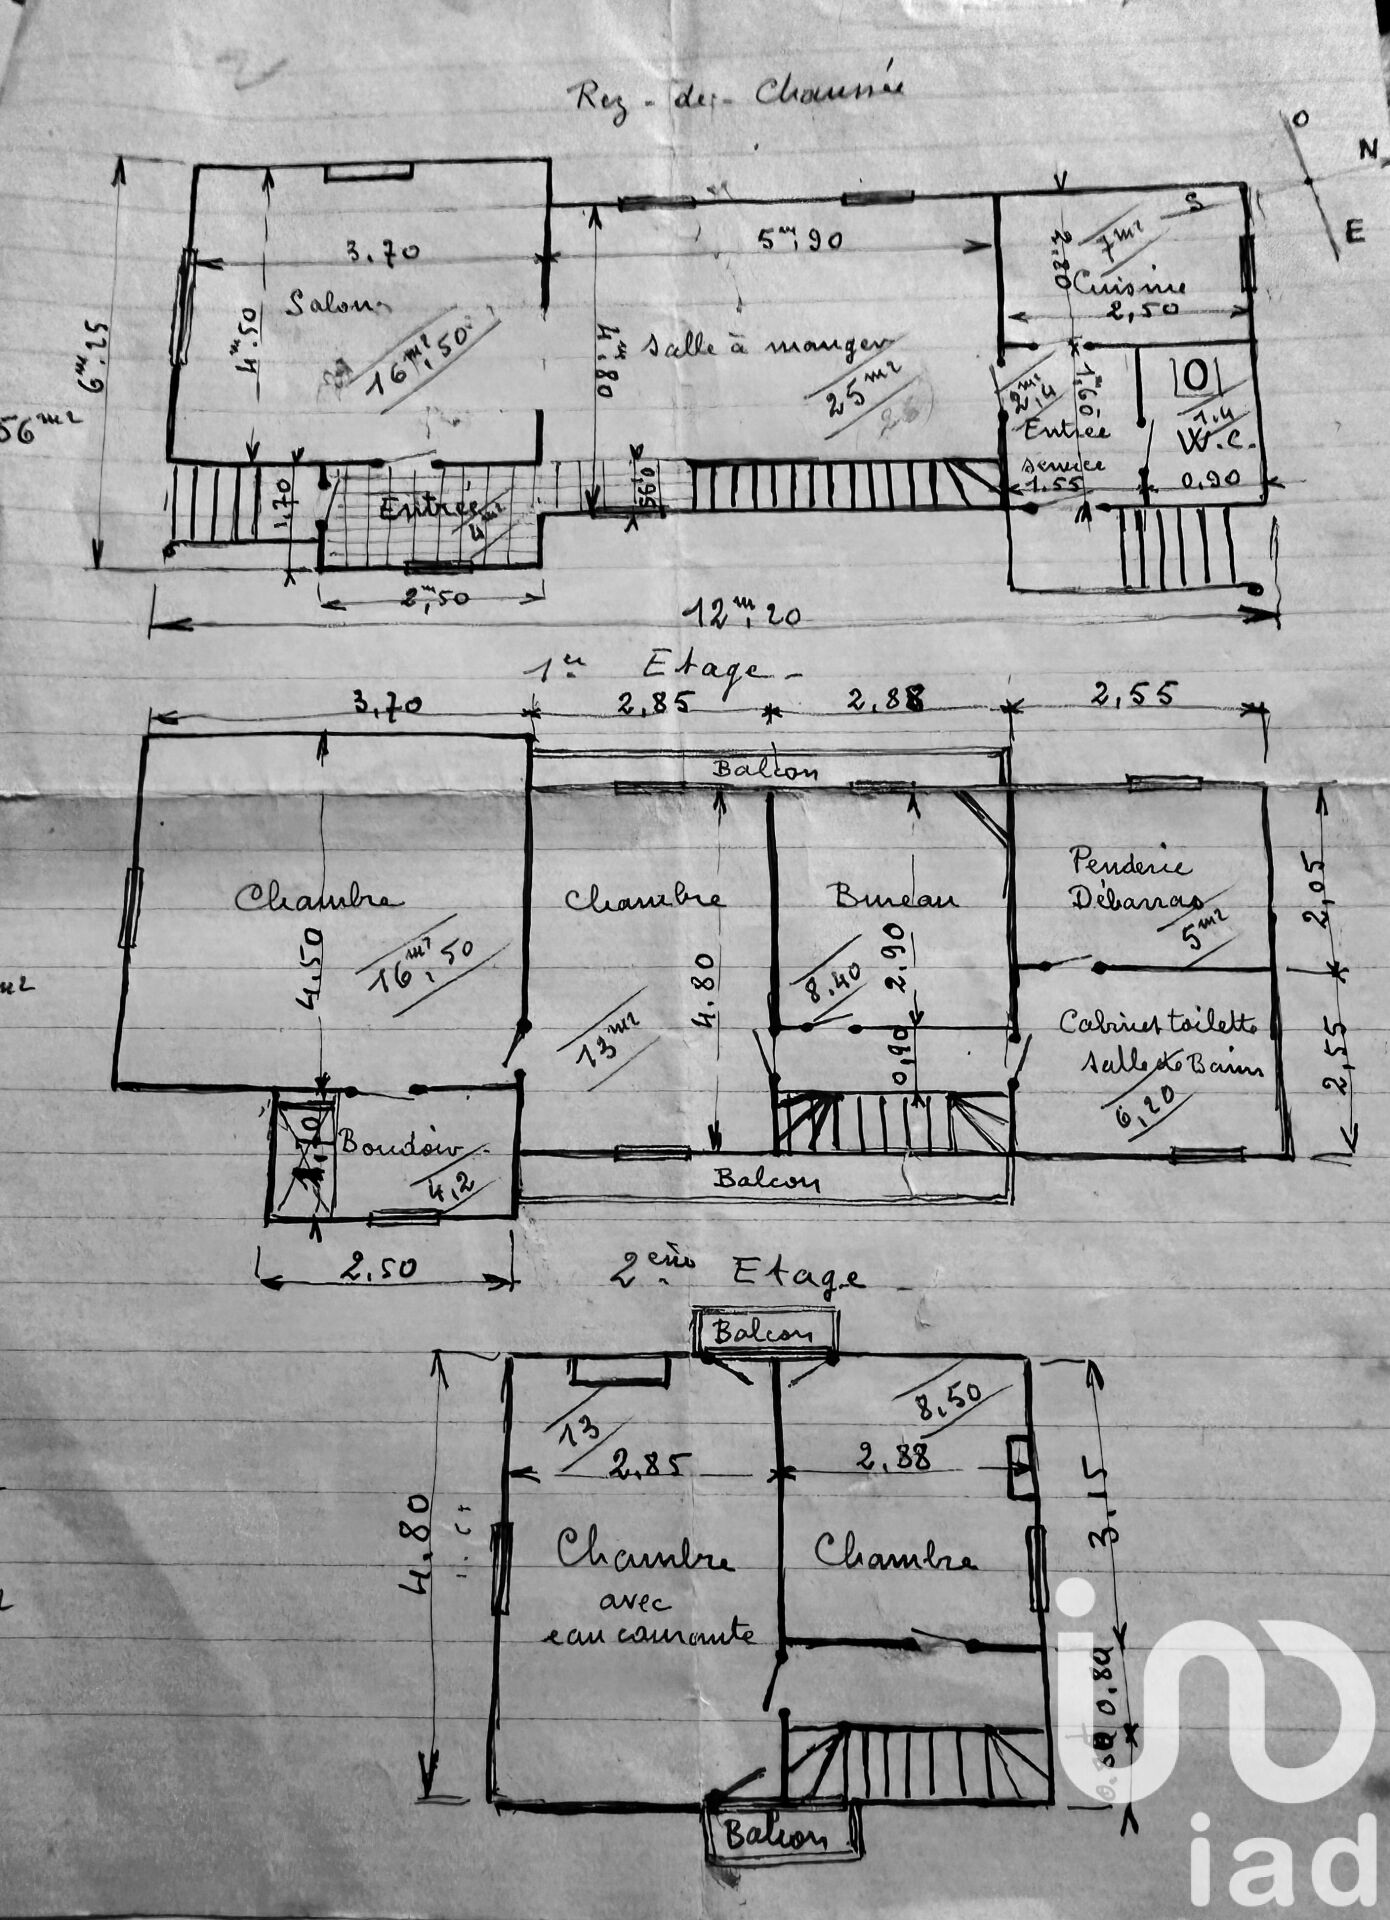 Rez-de-Chaussée
O
N
E
S
3,70
5m,90
2,80
7m²
Cuisine
2,50
Salon
4m,50
16m²,50
6m,25
4m,80
Salle à manger
25m²
56m²
2m²,4
1m,60
Entrée
service
1.55
1.4
W.C.
0,90
1,70
Entrée
4m²
0,95
2m,50
12m,20
1er Etage
3,70
2,85
2,88
2,55
Balcon
Chambre
16m²,50
4,50
Chambre
13m²
4.80
Bureau
8.40
2,90
0,90
Penderie
Débarras
5m²
2,05
Cabinet toilette
Salle de Bains
6,20
2,55
Boudoir
4,2
Balcon
2.50
2ème Etage
Balcon
13
8,50
2.85
2,88
4.80
3,15
Chambre
avec
eau courante
Chambre
0,80
Balcon
iad